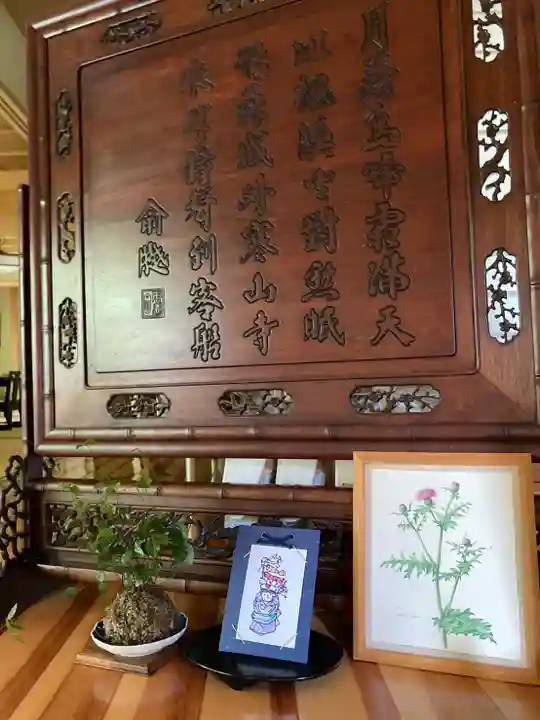 月落烏啼霜滿天
江楓漁火對愁眠
姑蘇城外寒山寺
夜半鐘聲到客船
俞樾